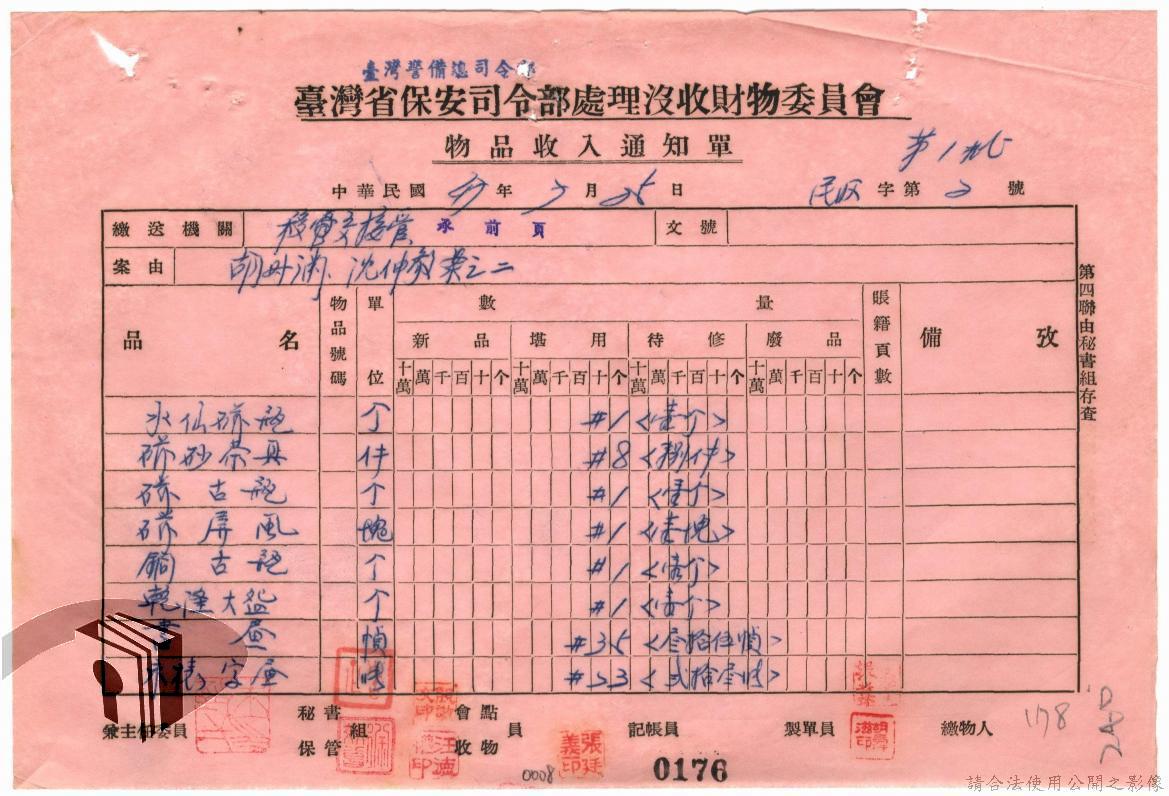 臺灣警備總司令部
臺灣省保安司令部處理沒收財物委員會
物品收入通知單
第1九七
中華民國47年7月25日
民收字第2號
繳送機關 承前頁 文號
案由 胡丹沛、沈仲
品名 物品號碼 單位 數量 賬籍頁數 備攷
新品 堪用 待修 廢品
十萬 萬 千 百 十 个 十萬 萬 千 百 十 个 十萬 萬 千 百 十 个 十萬 萬 千 百 十 个
水仙磁瓶 个 #1 <壹个>
磁砂茶具 件 #8 <捌件>
磁古瓶 个 #1 <壹个>
磁屏風 塊 #1 <壹塊>
銅古瓶 个 #1 <壹个>
乾隆大盌 个 #1 <壹个>
畫 幀 #35 <叁拾伍幀>
未裱字画 幀 #23 <弍拾叁幀>
第四聯由秘書組存查
兼主任委員 秘書組 保管 會點 收物 員 記帳員 製單員 繳物人
張廷義印
178
0008
0176
請合法使用公開之影像